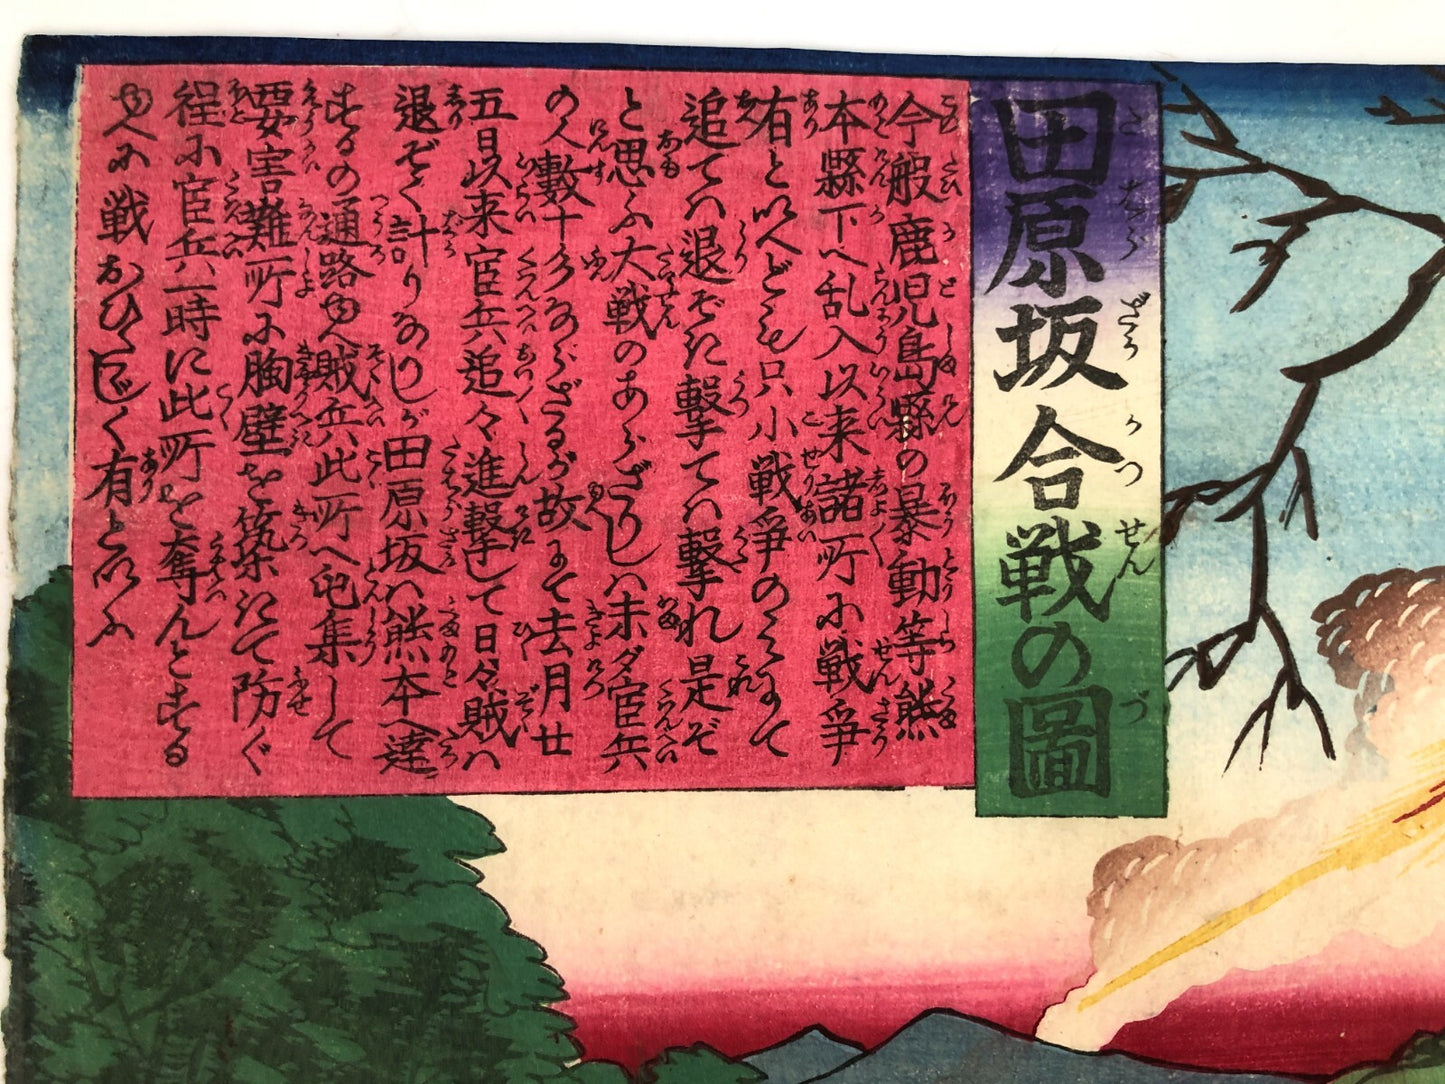 田原坂合戦の圖
今般鹿児島縣の暴動等熊
本縣下へ乱入以来諸所に戦爭
有と以へども只小戦爭のミにて
追てハ退ぞき撃てハ撃れ是ぞ
と思ふ大戦のあらざりしハ未ダ官兵
の人數十分ならざるが故にて去月廿
五日以来官兵追々進撃して日々賊ハ
退ぞく計りなりしが田原坂ハ熊本へ達
するの通路ゆへ賊兵此所へ屯集して
要害難所に胸壁を築きて防ぐ
程に官兵一時に此所を奪んとする
ゆへに戦おひ〳〵
有と以ふ